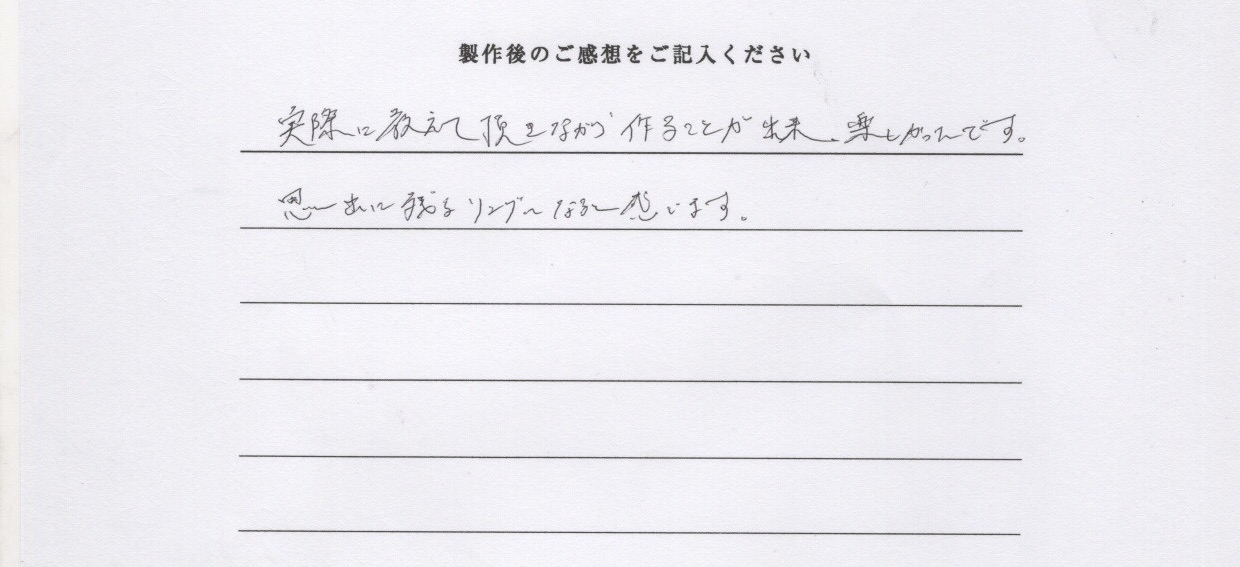 製作後のご感想をご記入ください
実際に教えて頂きながら作ることが出来、楽しかったです。
思い出に残るリングになると感じます。